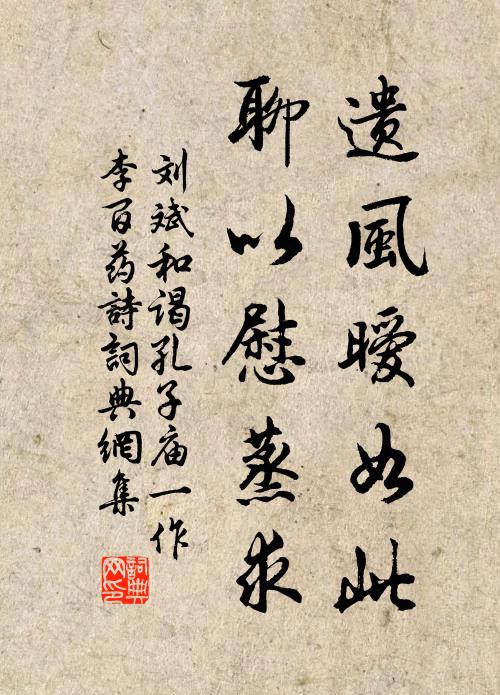 遗風曖如此
聊以慰蒸求
刘斌和谒孔子庙一作
李百药詩詞典網集
詞典网印